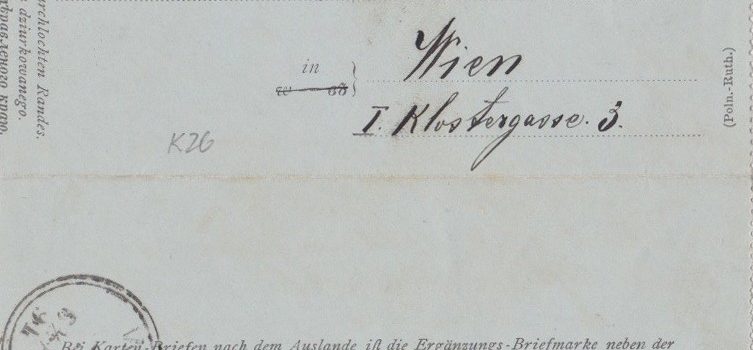 Wien
in
w
I. Klostergasse. 3.
K26
(Poln.-Ruth.)
urchlochten Randes.
dziurkowanego.
краю.
Bei Karten-Briefen nach dem Auslande ist die Ergänzungs-Briefmarke neben der